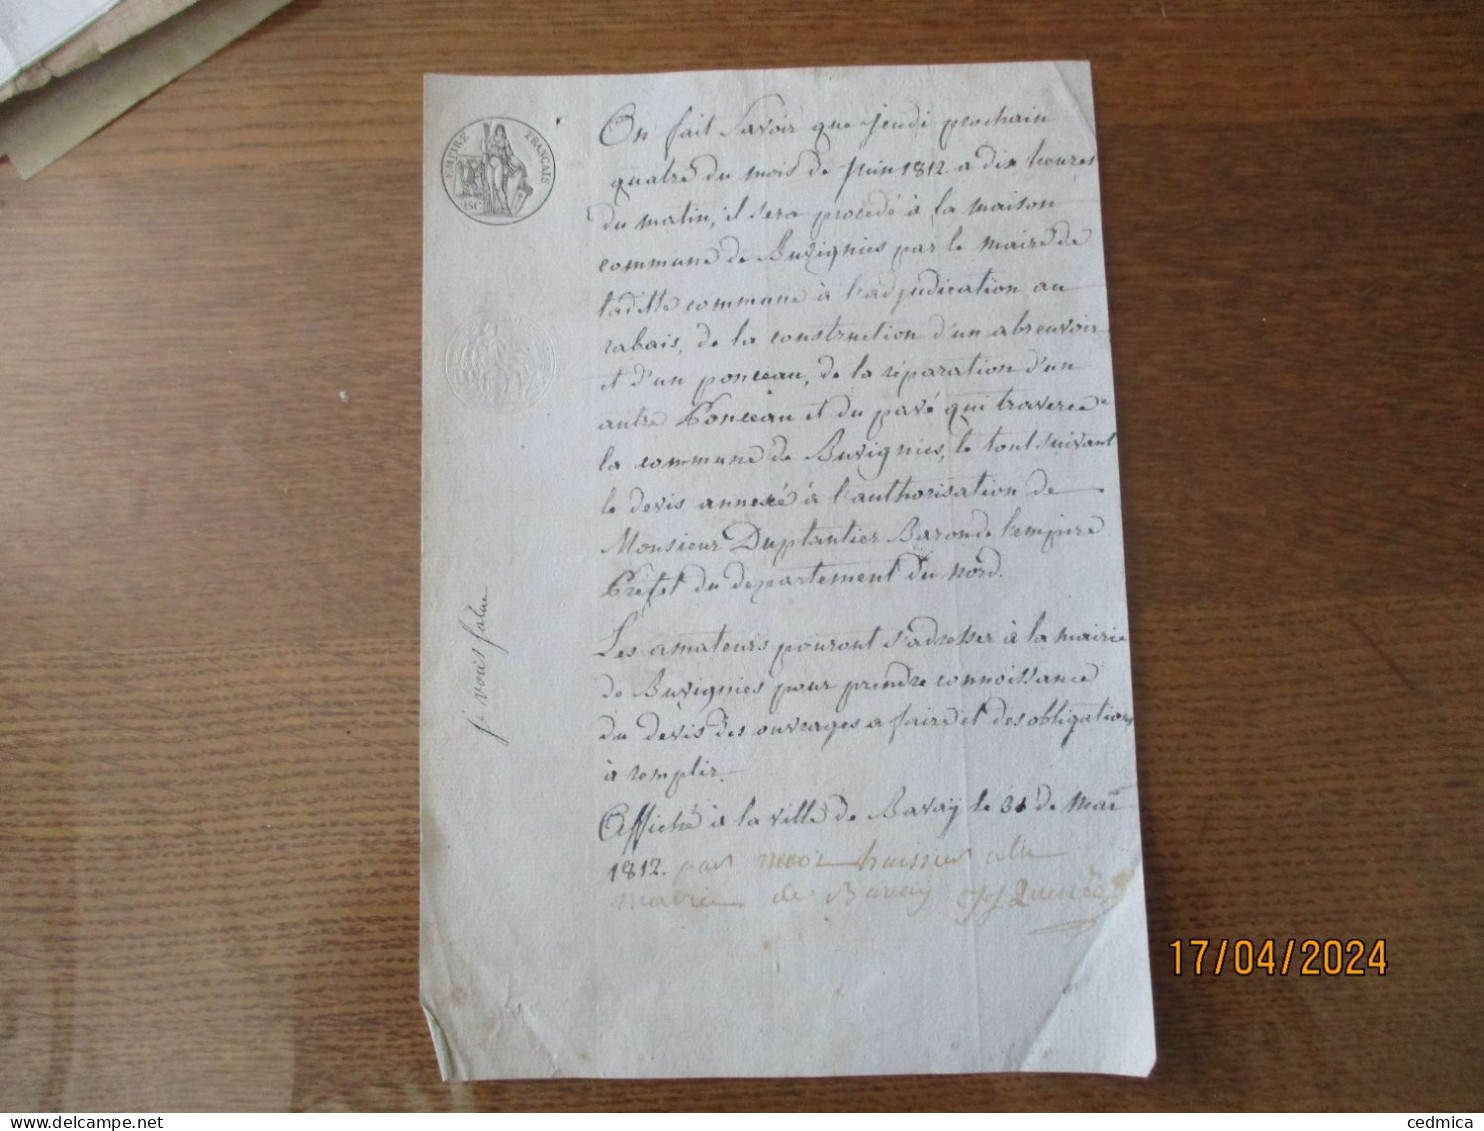 EMPIRE FRANÇAIS
25C
On fait Savoir que jeudi prochain
quatre du mois de Juin 1812. a dix heures
du matin, il sera procédé à la maison
commune de Buvignies par le maire de
laditte commune à l'adjudication au
rabais, de la construction d'un abreuvoir
et d'un ponceau, de la réparation d'un
autre Ponceau et du pavé qui traverse
la commune de Buvignies, le tout suivant
le devis annexé à l'authorisation de
Monsieur Duplantier Baron de l'empire
Préfet du département du Nord.
Les amateurs pouront s'adresser à la mairie
de Buvignies pour prendre connoissance
du devis des ouvrages a faire et des obligations
à remplir.
Affiché à la ville de Bavaÿ le 31 de Mai
1812. par moi huissier a la
mairie de Bavay
je vous salue
17/04/2024
delcampe.net
cedmica